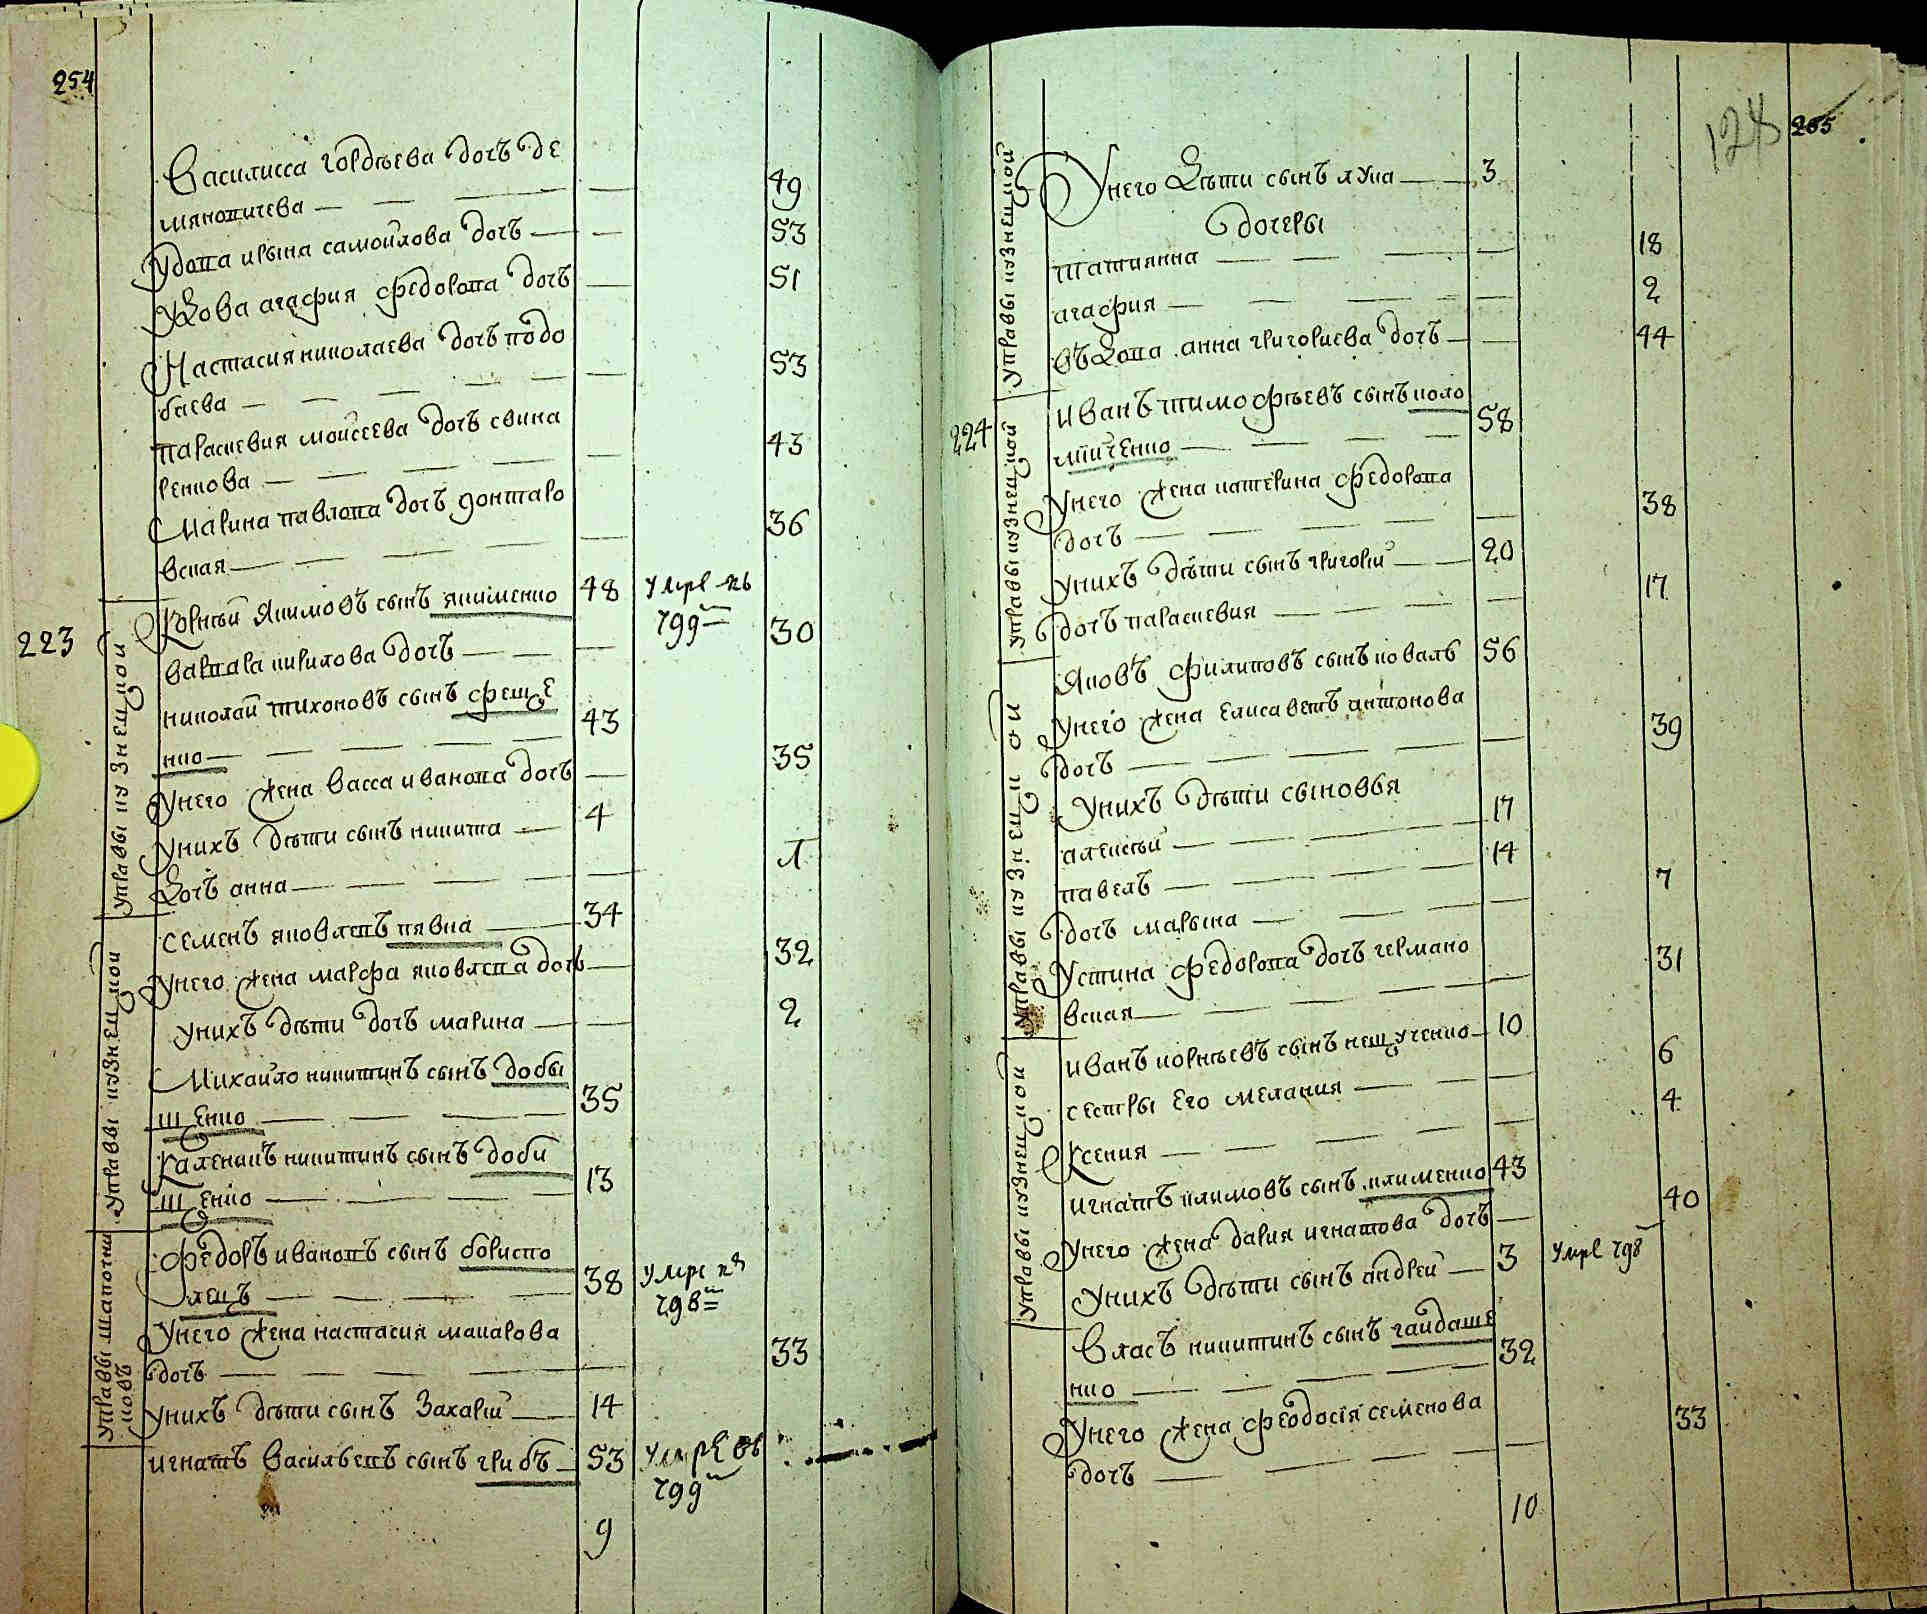 254
Василисса гордѣева дочъ де
мяновичева — 49
Удова ирина самойлова дочъ — 53
Удова агафия федорова дочъ — 51
Настасия николаева дочъ подо
баева — 53
параскевия моисеева дочъ свина
ренкова — 43
Марина павлова дочъ донтаро
вская — 36
223
управы кузнецкой
Корнѣй Якимовъ сынъ якименко 48 умре
799
варвара кирилова дочъ — 30
николай тихоновъ сынъ феще
нко — 43
Унего жена васса иванова дочъ — 35
Унихъ дѣти сынъ никита — 4
Дочъ анна — 1
управы кузнецкой
семенъ яковлевъ кявка — 34
Унего жена марфа яковлева дочъ — 32
Унихъ дѣти дочъ марина — 2
Михайло никитинъ сынъ добы
щенко — 35
Каленикъ никитинъ сынъ доби
щенко — 13
управы шапочни
ковъ
Федоръ ивановъ сынъ бориспо
лецъ — 38 умре
798
Унего жена настасия макарова
дочъ — 33
Унихъ дѣти сынъ Захарій — 14
игнатъ васильевъ сынъ грибъ — 53 умре
799
9
128 255
управы кузнецкой
Унего Дѣти сынъ лука — 3
Дочеры
татиянна — 18
агафия — 2
вѣдова анна григориева дочъ — 44
224
управы кузнецкой
иванъ тимофѣевъ сынъ коло
мийченко — 58
Унего жена катерина федорова
дочъ — 38
Унихъ дѣти сынъ григорій — 20
дочъ параскевия — 17
управы кузнецкой
Яковъ филиповъ сынъ коваль 56
Унего жена елисаветъ антонова
дочъ — 39
Унихъ дѣти сыновья
алексѣй — 17
павелъ — 14
дочъ марына — 7
Устина федорова дочъ германо
вская — 31
управы кузнецкой
иванъ корнѣевъ сынъ нещученко — 10
сестры его мелания — 6
Ксения — 4
игнатъ климовъ сынъ клименко 43
Унего жена дария игнатова дочъ — 40
Унихъ дѣти сынъ андрей — 3 умре 798
Власъ никитинъ сынъ гайдаше
нко — 32
Унего жена феодосія семенова
дочъ — 33
10